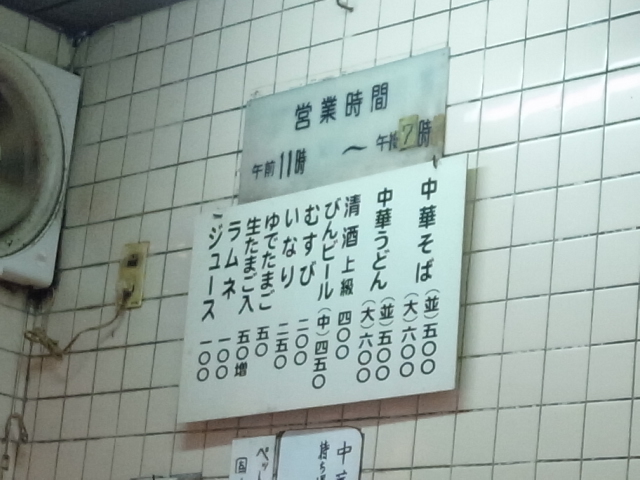 営業時間
午前11時 ～ 午後7時
中華そば (並) 五〇〇
(大) 六〇〇
中華うどん (並) 五〇〇
(大) 六〇〇
清酒上級 四〇〇
びんビール (中) 四五〇
むすび 二〇〇
いなり 二五〇
ゆでたまご 五〇
生たまご入 五〇増
ラムネ 一〇〇
ジュース 一〇〇
中
持ち
ペッ